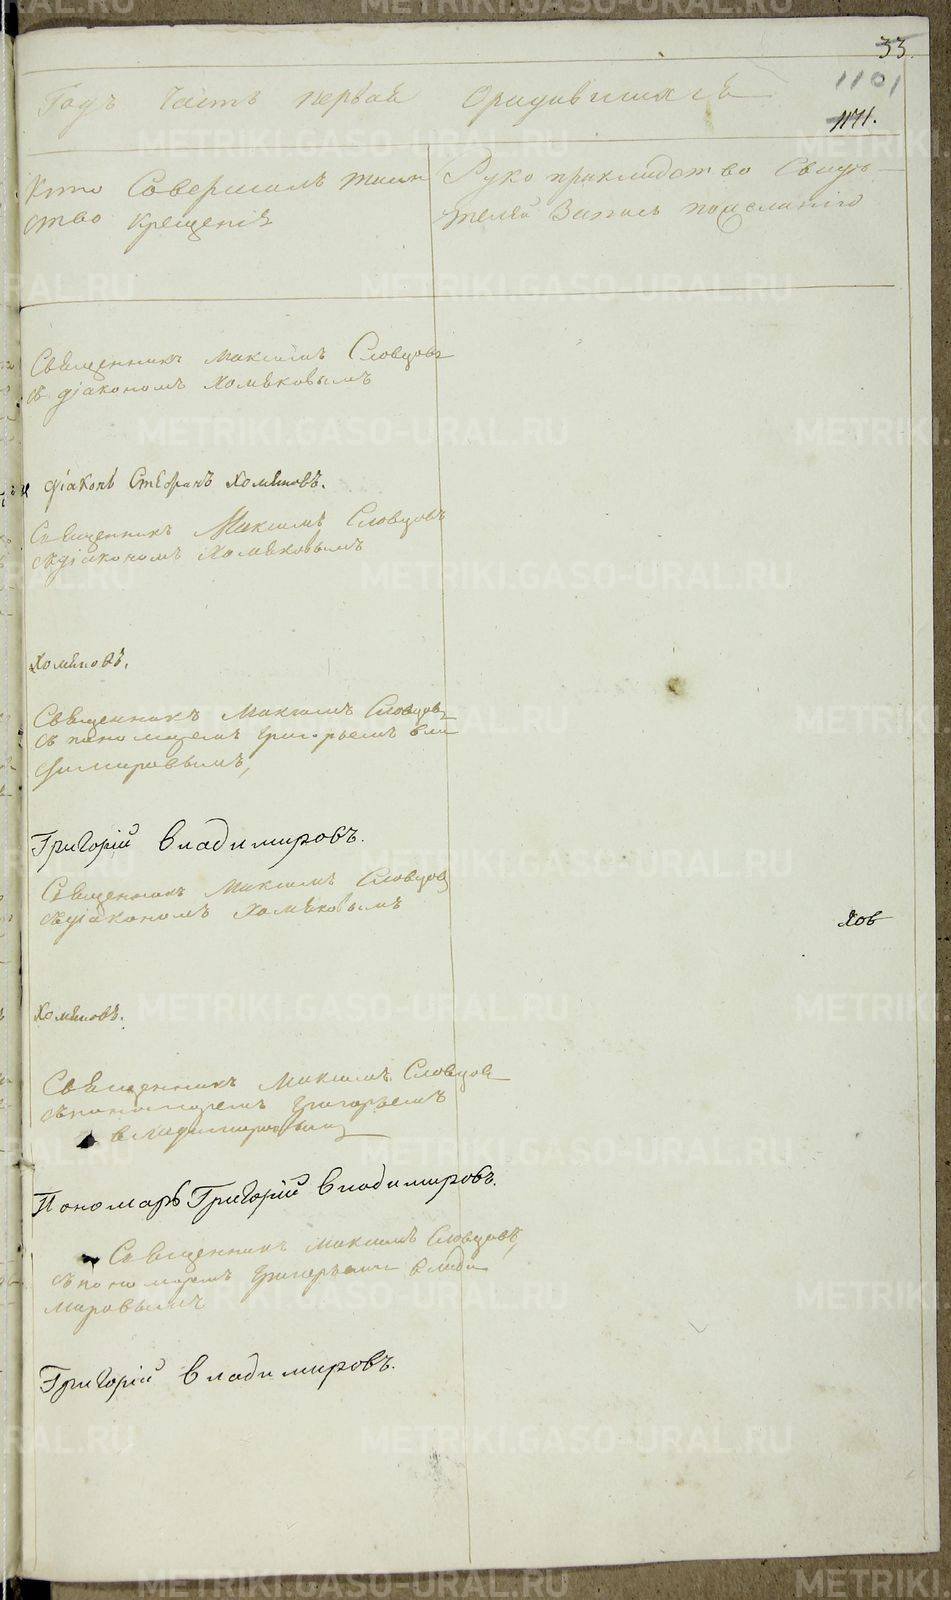 33.
1101
1171.
Годъ Часть первая Ородившихся
Кто Совершалъ таин Рукоприкладство Свидѣ
ство крещенія телей Запись пожеланію
Священникъ Максимъ Словцовъ
съ діакономъ Хомяковымъ
діаконъ Стефанъ Хомяковъ.
Священникъ Максимъ Словцовъ
съ діакономъ Хомяковымъ
Хомяковъ.
Священникъ Максимъ Словцовъ
съ пономаремъ Григорьемъ Вла
димировымъ,
Григорій Владимировъ.
Священникъ Максимъ Словцовъ
съ діакономъ Хомяковымъ
ков
Хомяковъ.
Священникъ Максимъ Словцовъ
съ пономаремъ Григорьемъ
Владимировымъ
Пономарь Григорій Владимировъ.
Священникъ Максимъ Словцовъ
съ пономаремъ Григорьемъ Влади
мировымъ
Григорій Владимировъ.
METRIKI.GASO-URAL.RU